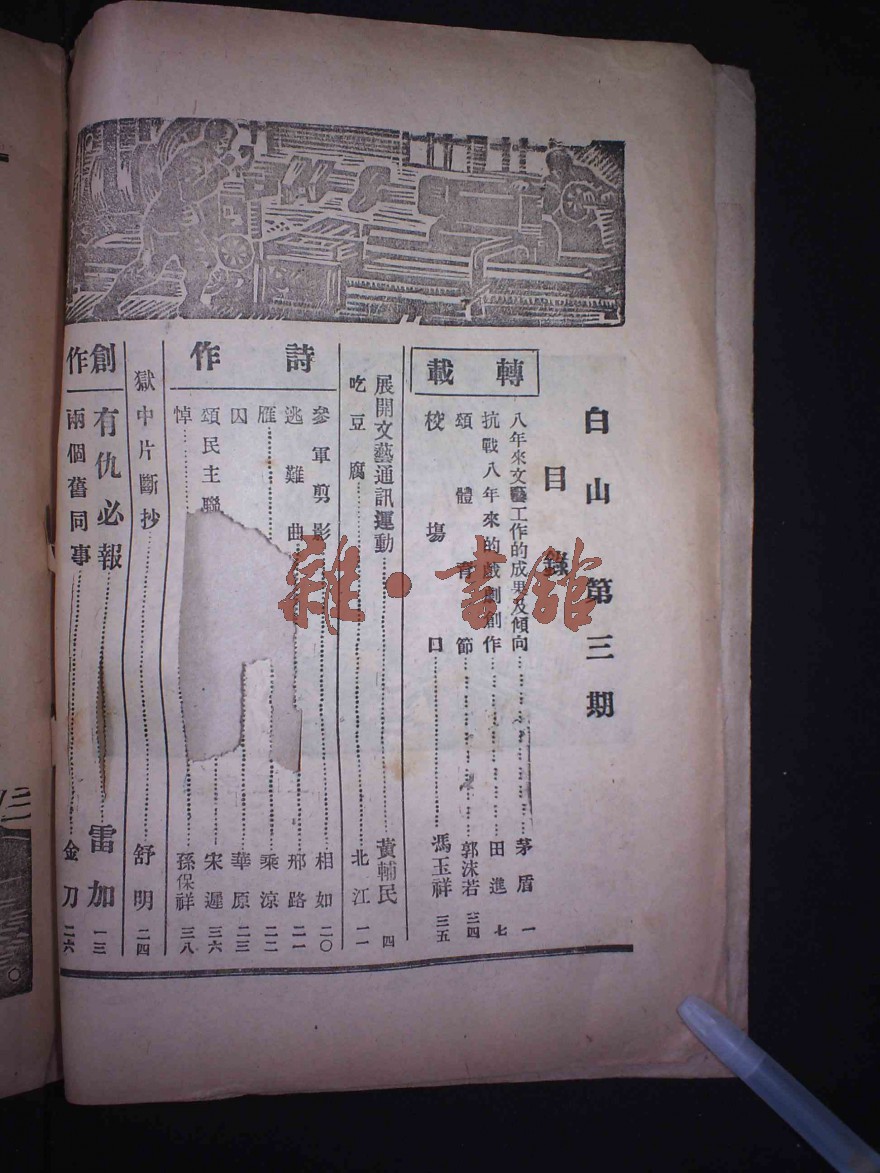 白山第三期
目錄
轉載
八年來文藝工作的成果及傾向……茅盾 一
抗戰八年來的戲劇創作……田進 七
頌體育節……郭沫若 三四
校塲口……馮玉祥 三五
展開文藝通訊運動……黃輔民 四
吃豆腐……北江 一一
詩作
參軍剪影……相如 二〇
逃難曲……邢路 二一
雁……乘涼 二二
囚……華原 二三
頌民主聯……宋遲 三六
悼……孫保祥 三八
獄中片斷抄……舒明 二四
創作
有仇必報……雷加 一三
兩個舊同事……金刀 二六
雜·書館